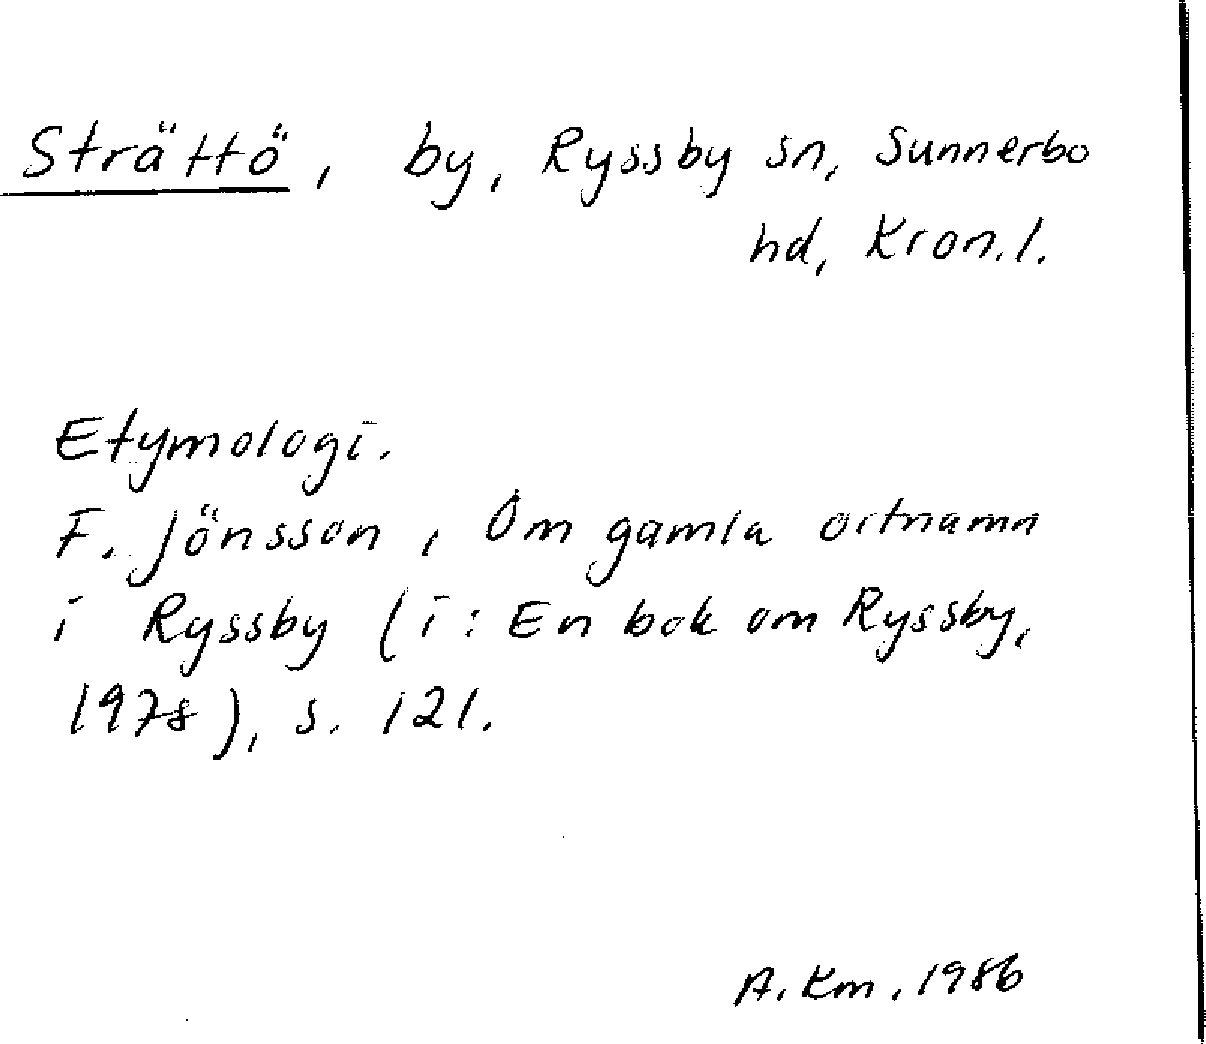 Strättö, by, Ryssby sn, Sunnerbo
hd, Kron.l.
Etymologi.
F. Jönsson, Om gamla ortnamn
i Ryssby (i: En bok om Ryssby,
1978), s. 121.
A. Km. 1986